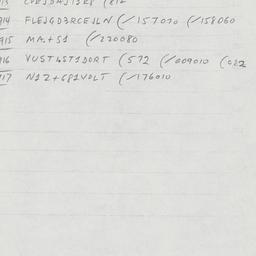 914 FLEJGD3RCEJLN (/157070 (/158060
915 MA+S1 (/220080
916 VUST4ST1DORT (572 (/609010 (022
917 N1Z+6P1VOLT (/176010